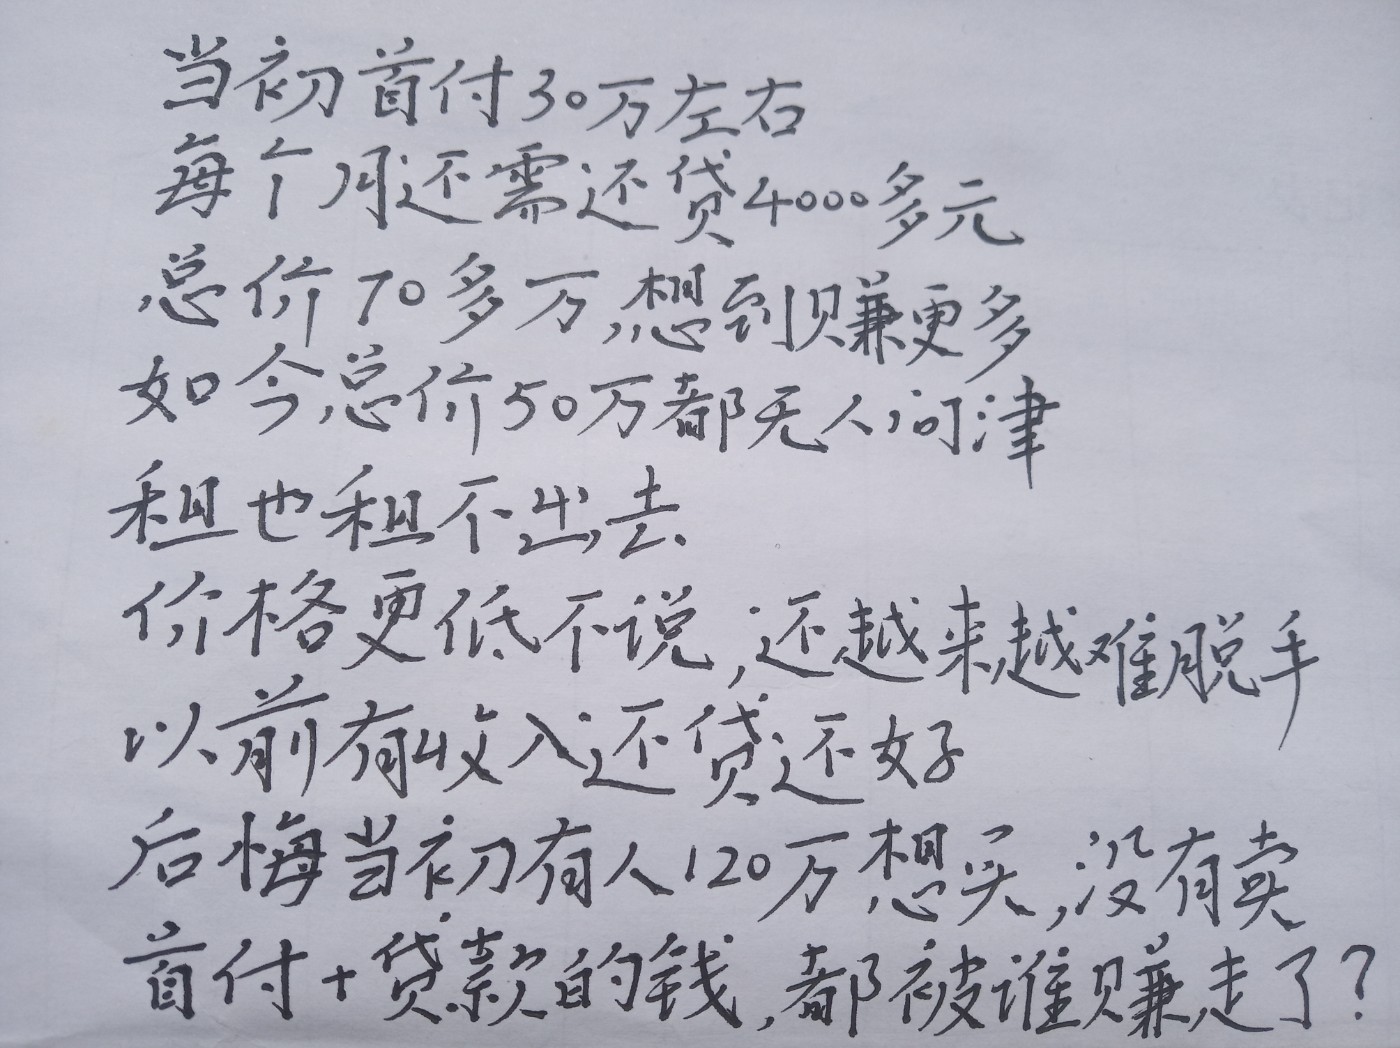 当初首付30万左右
每个月还需还贷4000多元
总价70多万,想到赚更多
如今总价50万都无人问津
租也租不出去
价格更低不说,还越来越难脱手
以前有收入还贷还好
后悔当初有人120万想买,没有卖
首付+贷款的钱,都被谁赚走了?